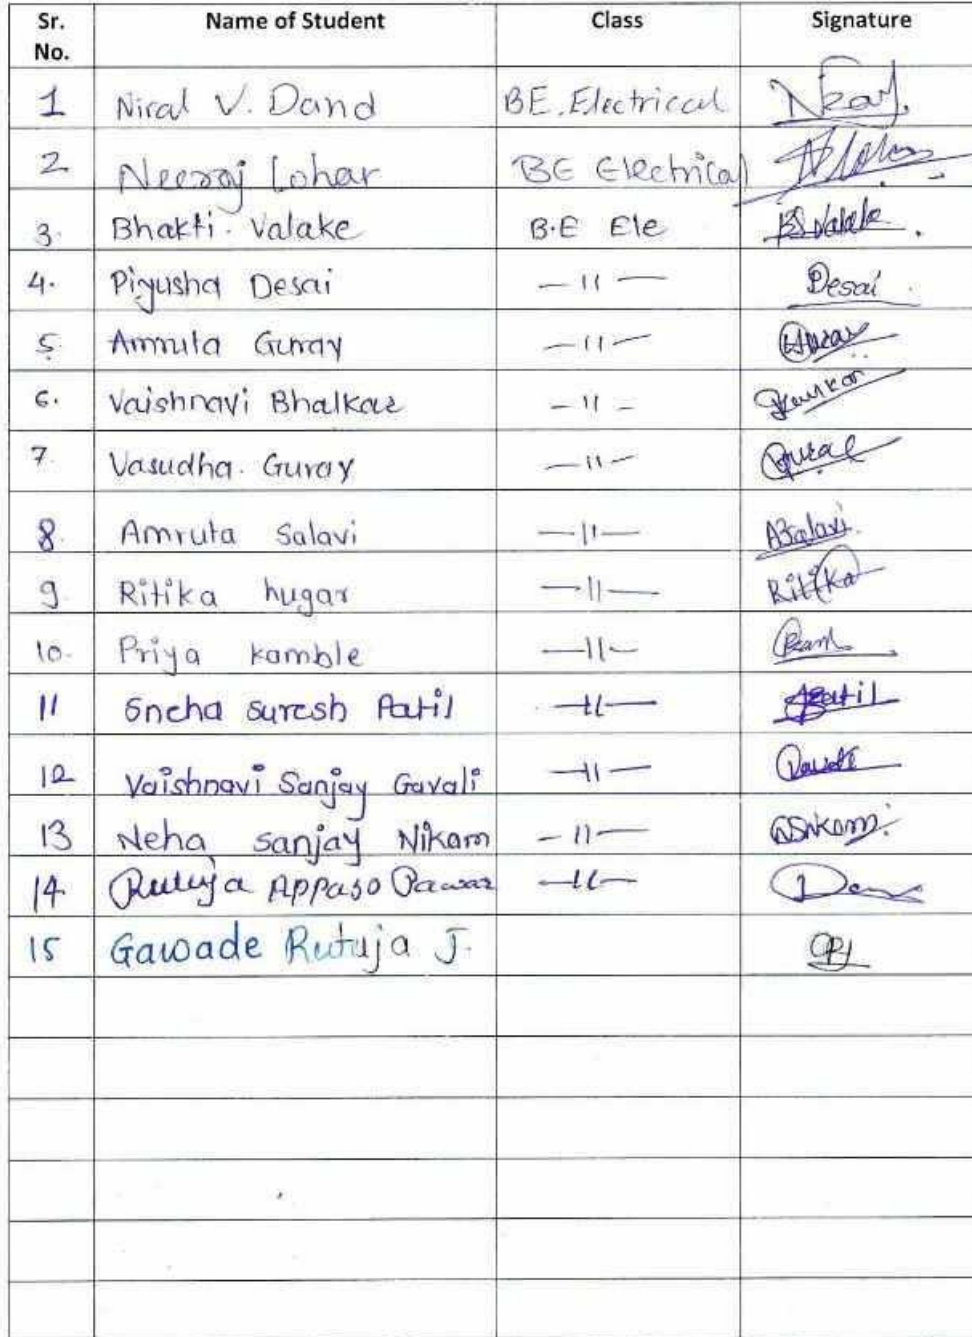 Sr. No. Name of Student Class Signature
1 Niral V. Dand BE.Electrical
2 Neeraj Lohar BE Electrical
3. Bhakti. Valake B.E Ele BSValake
4. Piyusha Desai —11— Desai
5. Amruta Gurav —11—
6. Vaishnavi Bhalkar —11—
7. Vasudha. Gurav —11— Gurav
8. Amruta Salavi —11— ASalavi
9. Ritika hugar —11— Ritika
10. Priya kamble —11—
11 Sneha Suresh Patil —11— Patil
12 Vaishnavi Sanjay Gavali —11—
13 Neha Sanjay Nikam —11— Nikam
14. Rutuja Appaso Pawar —11—
15 Gawade Rutuja J.